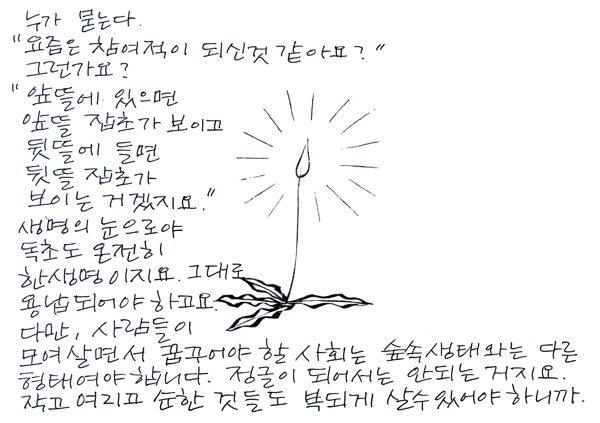 누가 묻는다.
"요즘은 참여적이 되신것 같아요?"
그런가요?
"앞뜰에 있으면
앞뜰 잡초가 보이고
뒷뜰에 들면
뒷뜰 잡초가
보이는 거겠지요."
생명의 눈으로야
독초도 온전히
한생명이지요. 그대로
용납되어야 하고요.
다만, 사람들이
모여살면서 꿈꾸어야 할 사회는 숲속생태와는 다른
형태여야 합니다. 정글이 되어서는 안되는 거지요.
작고 여리고 순한 것들도 복되게 살수있어야 하니까.